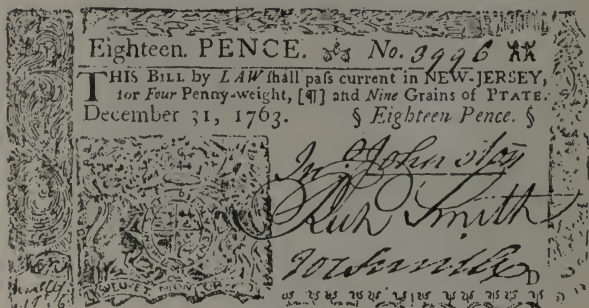 Eighteen. PENCE. No. 3996
THIS BILL by LAW ſhall paſs current in NEW-JERSEY,
for Four Penny-weight, [¶] and Nine Grains of PTATE.
December 31, 1763. § Eighteen Pence. §
Jn Johnston
Rich Smith
DIEU ET MON